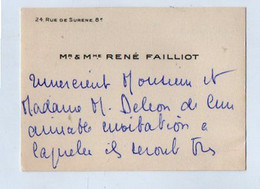 24, RUE DE SURÈNE. 8ᵉ
Mʀ & Mᴍᴇ RENÉ FAILLIOT
remercient Monsieur et
Madame M. Deleon de leur
aimable invitation à
laquelle ils seront très